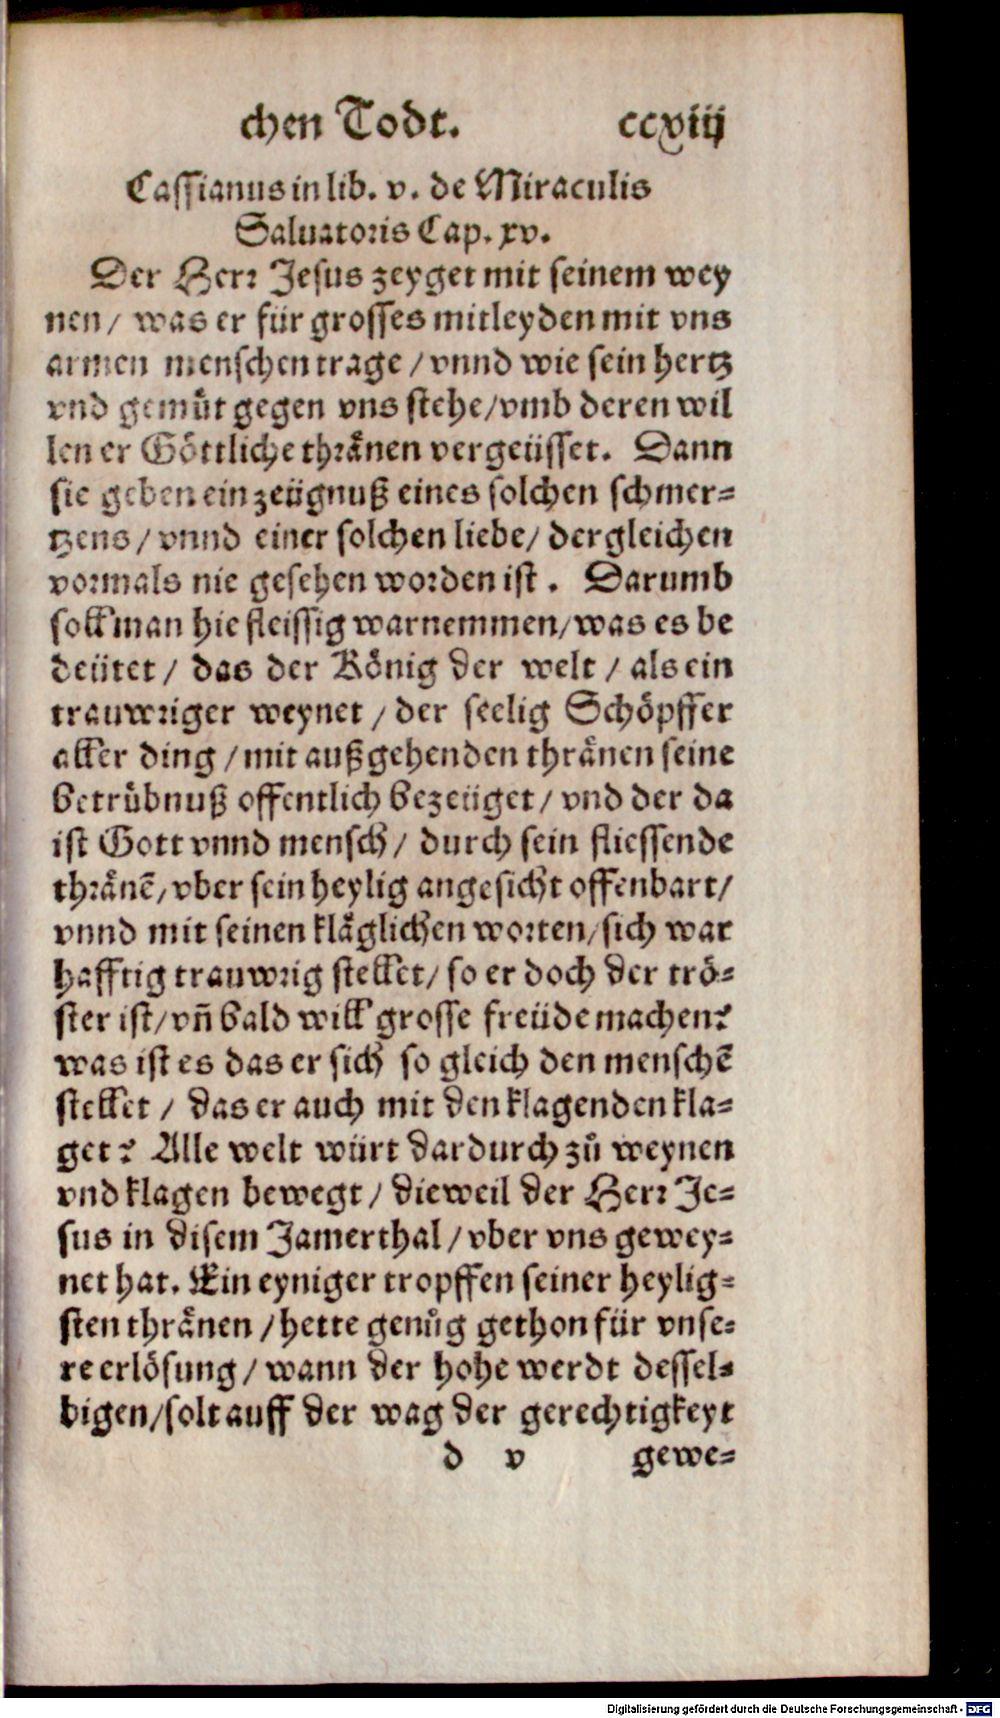 chen Todt. ccxiij
Cassianus in lib. v. de Miraculis
Saluatoris Cap. xv.
Der Herr Jesus zeyget mit seinem wey
nen / was er für grosses mitleyden mit vns
armen menschen trage / vnnd wie sein hertz
vnd gemüt gegen vns stehe / vmb deren wil
len er Göttliche thrånen vergeüsset. Dann
sie geben ein zeügnuß eines solchen schmer⸗
tzens / vnnd einer solchen liebe / dergleichen
vormals nie gesehen worden ist. Darumb
soll man hie fleissig warnemmen / was es be
deütet / das der König der welt / als ein
trauwriger weynet / der seelig Schöpffer
aller ding / mit außgehenden thrånen seine
betrübnuß offentlich bezeüget / vnd der da
ist Gott vnnd mensch / durch sein fliessende
thränẽ / vber sein heylig angesicht offenbart /
vnnd mit seinen kläglichen worten / sich war
hafftig trauwrig stellet / so er doch der trö⸗
ster ist / vñ bald will grosse freüde machen?
was ist es das er sich so gleich den menschẽ
stellet / das er auch mit den klagenden kla⸗
get? Alle welt würt dardurch zů weynen
vnd klagen bewegt / dieweil der Herr Je⸗
sus in disem Jamerthal / vber vns gewey⸗
net hat. Ein eyniger tropffen seiner heylig⸗
sten thrånen / hette genůg gethon für vnse⸗
re erlösung / wann der hohe werdt dessel⸗
bigen / solt auff der wag der gerechtigkeyt
d v gewe⸗
Digitalisierung gefördert durch die Deutsche Forschungsgemeinschaft - DFG